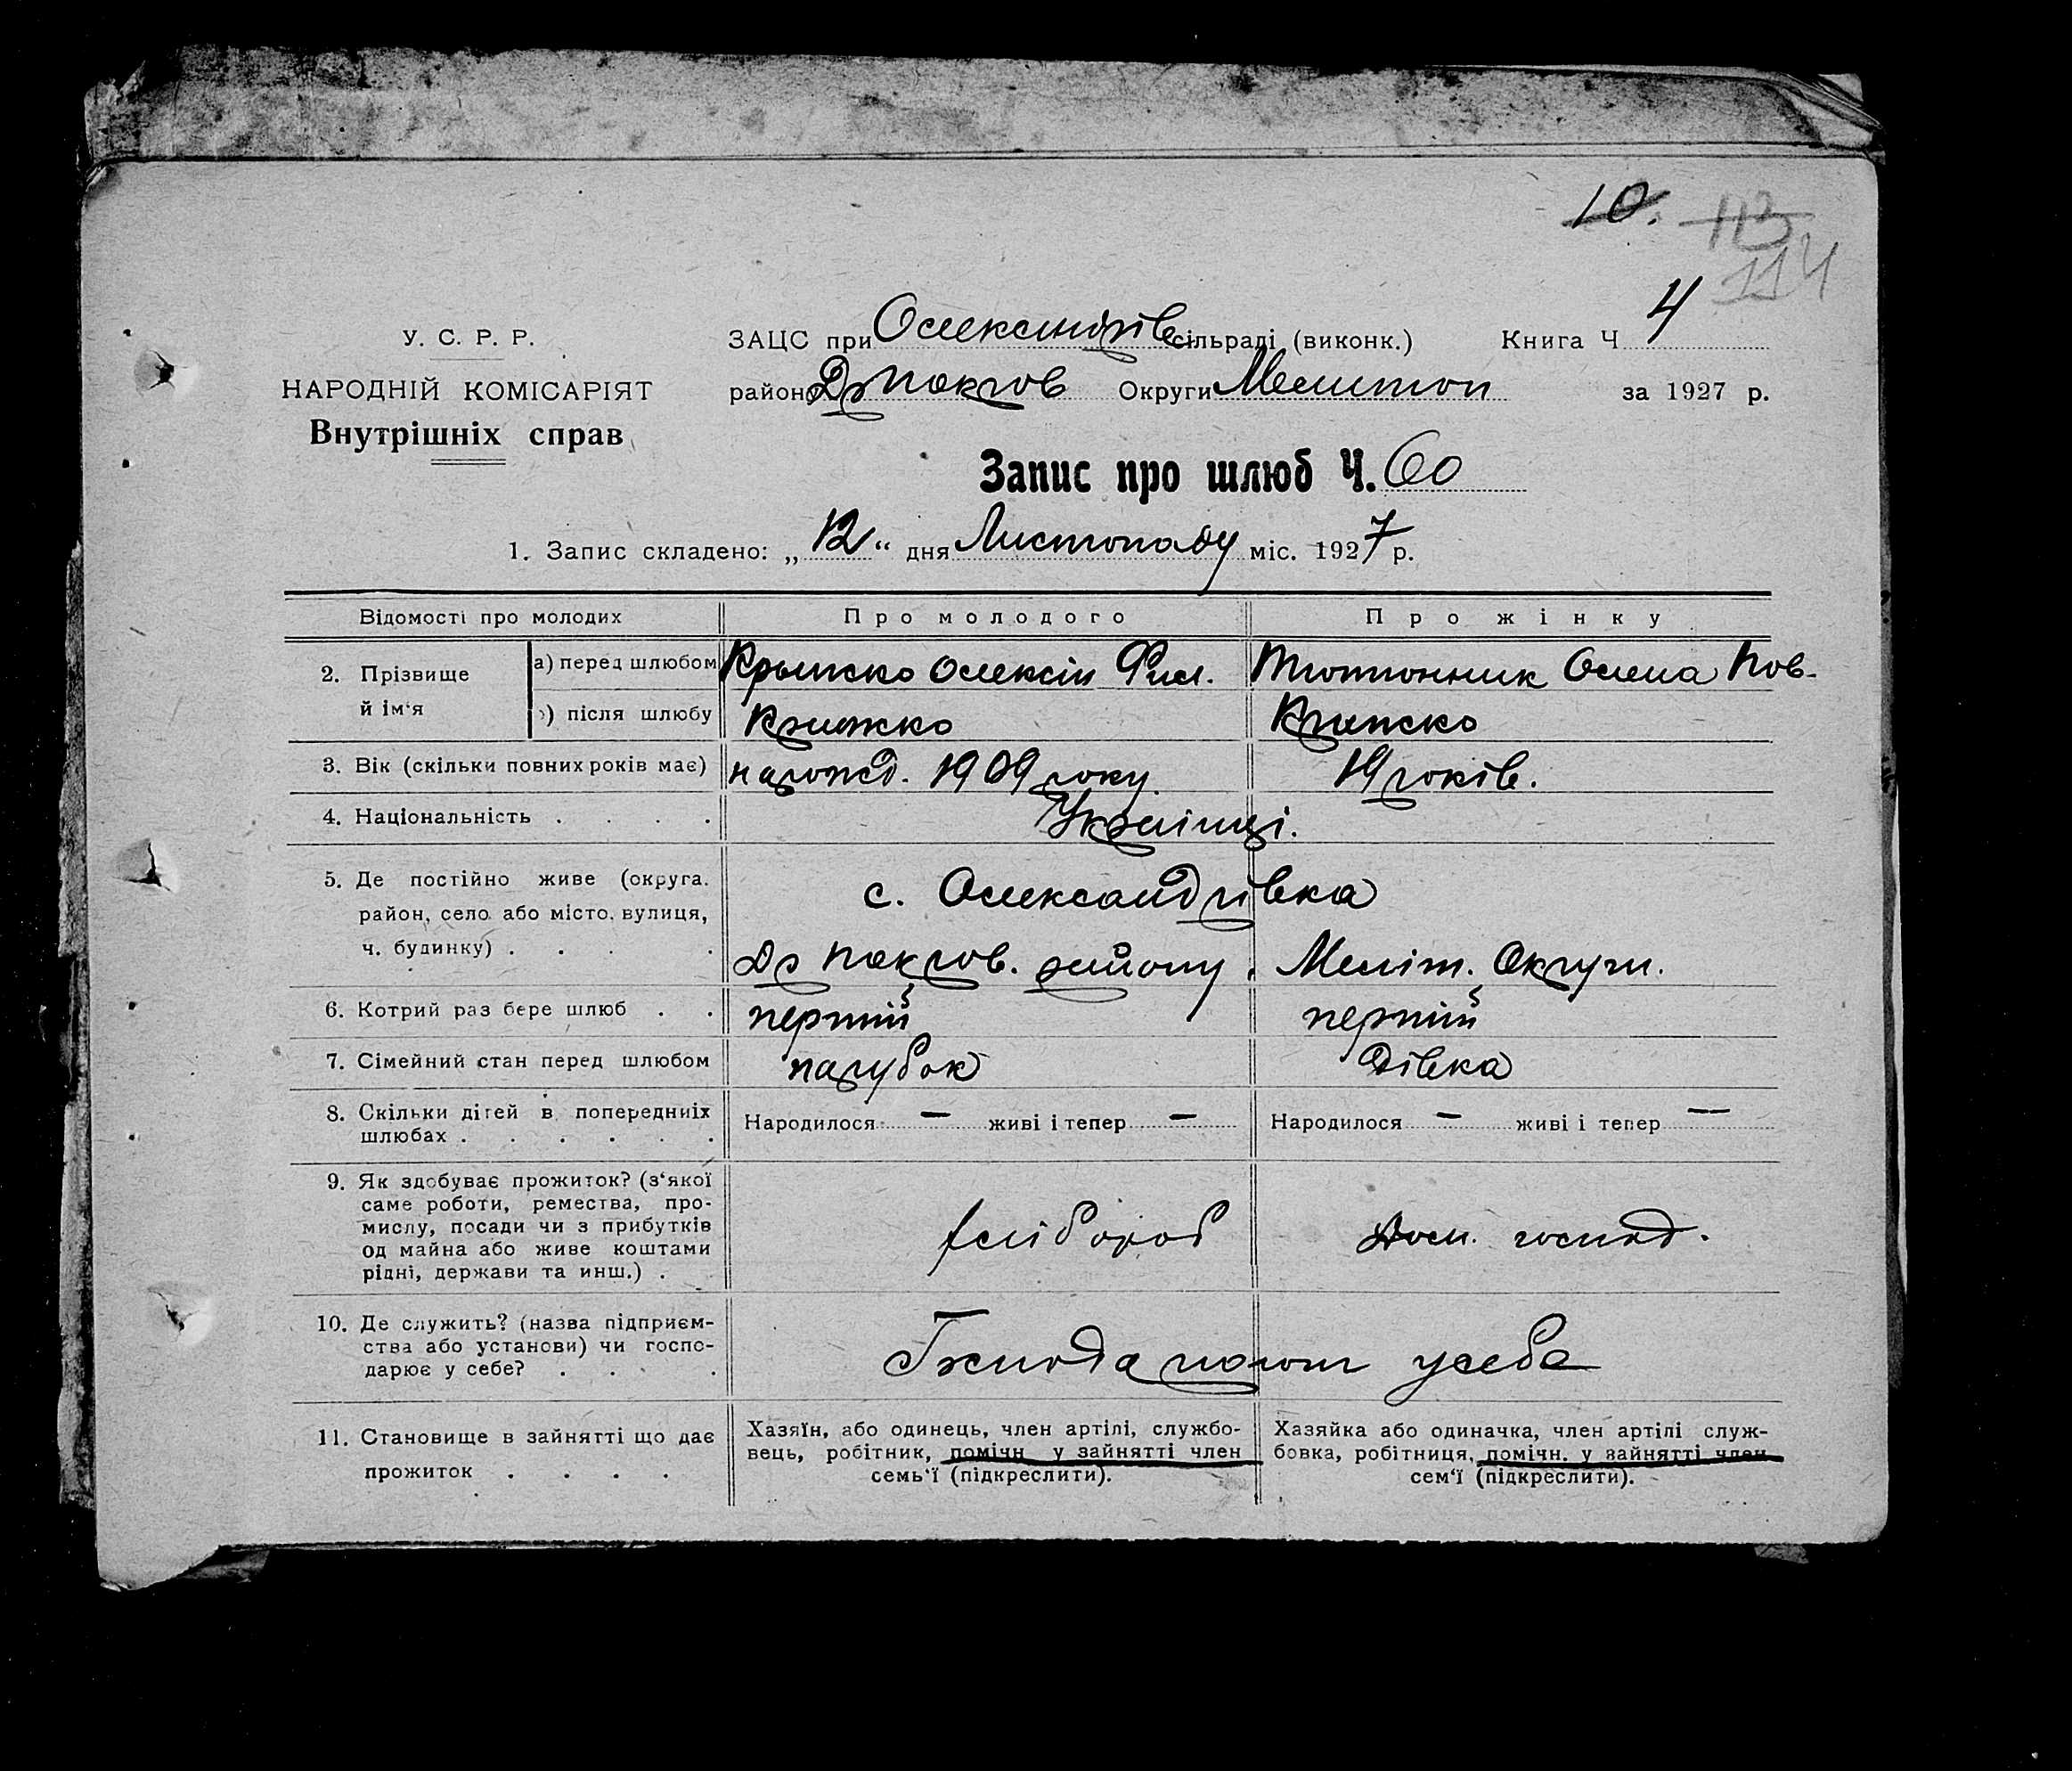 10. 113
114
У. С. Р. Р.
НАРОДНІЙ КОМІСАРІЯТ
Внутрішніх справ
ЗАЦС при Олександрів сільраді (виконк.) Книга Ч 4
району Др Покров Округи Мелитоп за 1927 р.
Запис про шлюб Ч. 60
1. Запис складено: „12“ дня Листопаду міс. 1927 р.
Відомості про молодих Про молодого Про жінку
2. Прізвище й ім‘я
а) перед шлюбом Олексій Фил. Тютюнник Олена Пов.
б) після шлюбу Крижко Крижко
3. Вік (скільки повних років має) нарожд. 1909 року. 19 років.
4. Національність . . . . Українці.
5. Де постійно живе (округа, с. Олександрівка
район, село або місто, вулиця,
ч. будинку) . . . . Др Покров. району, Меліт. Округи.
6. Котрий раз бере шлюб . . перший перший
7. Сімейний стан перед шлюбом парубок дівка
8. Скільки дітей в попередниіх Народилося — живі і тепер — Народилося — живі і тепер —
шлюбах . . . . . .
9. Як здобуває прожиток? (з‘якої
саме роботи, ремества, про-
мислу, посади чи з прибутків хлібороб Дом. господ.
од майна або живе коштами
рідні, держави та инш.) .
10. Де служить? (назва підприєм-
ства або установи) чи госпо- Господарюют усебе
дарює у себе? . . .
11. Становище в зайнятті що дає
прожиток . . . .
Хазяїн, або одинець, член артілі, службо-
вець, робітник, помічн у зайнятті член
семь‘ї (підкреслити).
Хазяйка або одиначка, член артілі служ-
бовка, робітниця, помічн. у зайнятті член
сем‘ї (підкреслити).